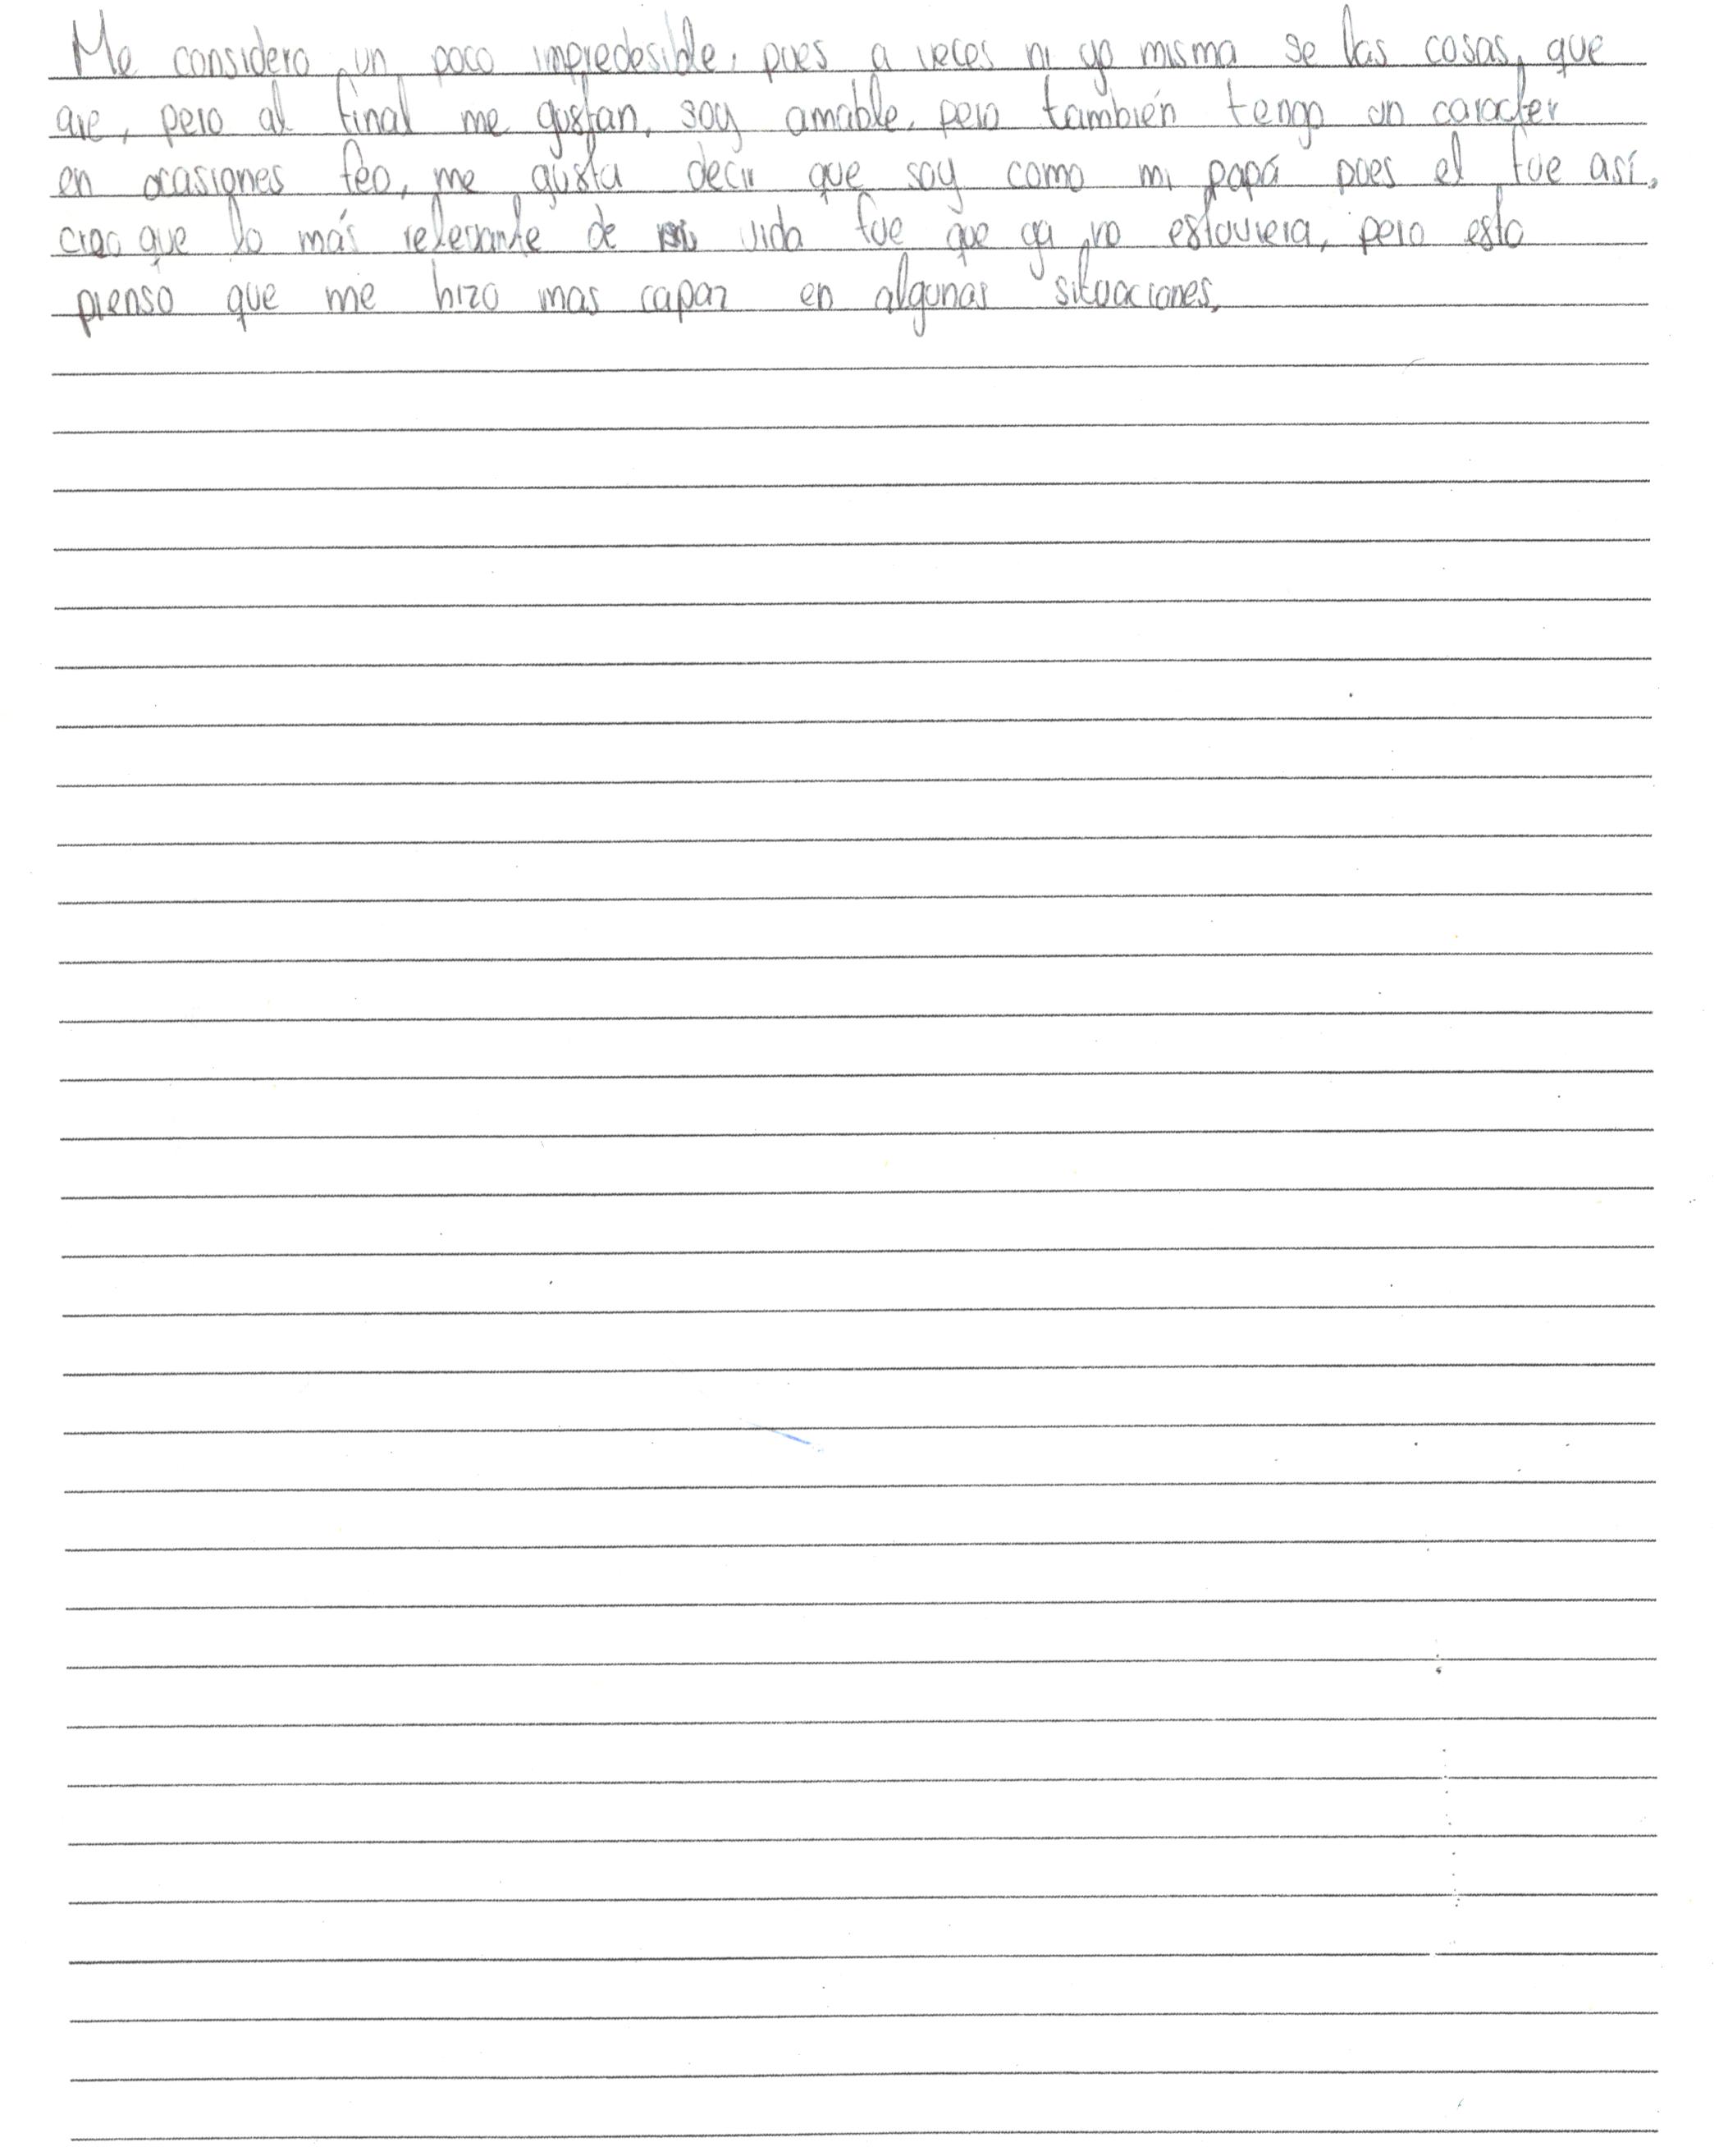 Me considero un poco impredesible, pues a veces ni yo misma se las cosas, que
are, pero al final me gustan, soy amable, pero también tengo un caracter
en ocasiones feo, me gusta decir que soy como mi papá pues el fue así,
creo que lo más relevante de mi vida fue que ya no estouviera, pero esto
pienso que me hizo mas capaz en algunas situaciones.